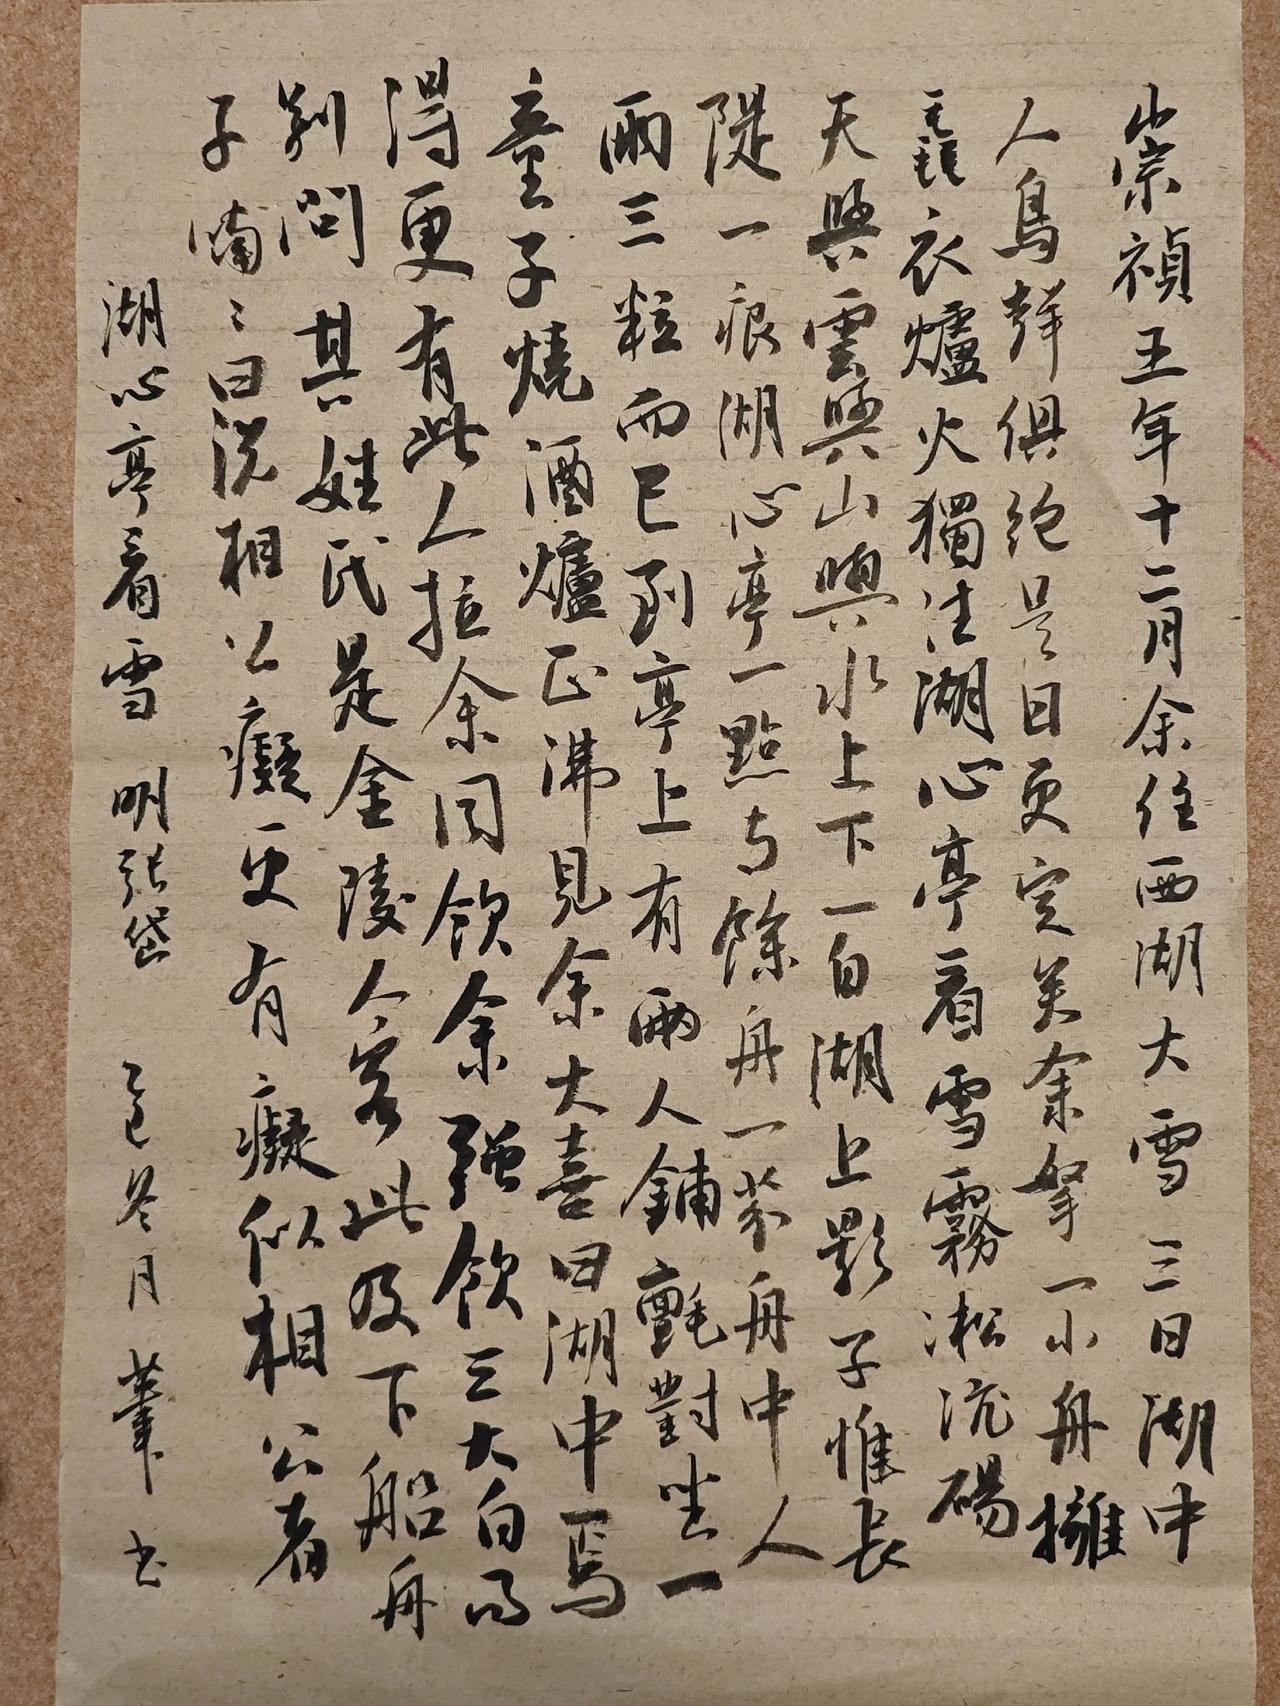 崇禎五年十二月余住西湖大雪三日湖中
人鳥聲俱絕是日更定矣余拏一小舟擁
毳衣爐火獨往湖心亭看雪霧凇沆碭
天與雲與山與水上下一白湖上影子惟長
隄一痕湖心亭一點与餘舟一芥舟中人
兩三粒而已到亭上有兩人鋪氈對坐一
童子燒酒爐正沸見余大喜曰湖中焉
得更有此人拉余同飲余強飲三大白而
別問其姓氏是金陵人客此及下船舟
子喃々曰説相公癡更有癡似相公者
湖心亭看雪 明張岱 乙巳冬月 書